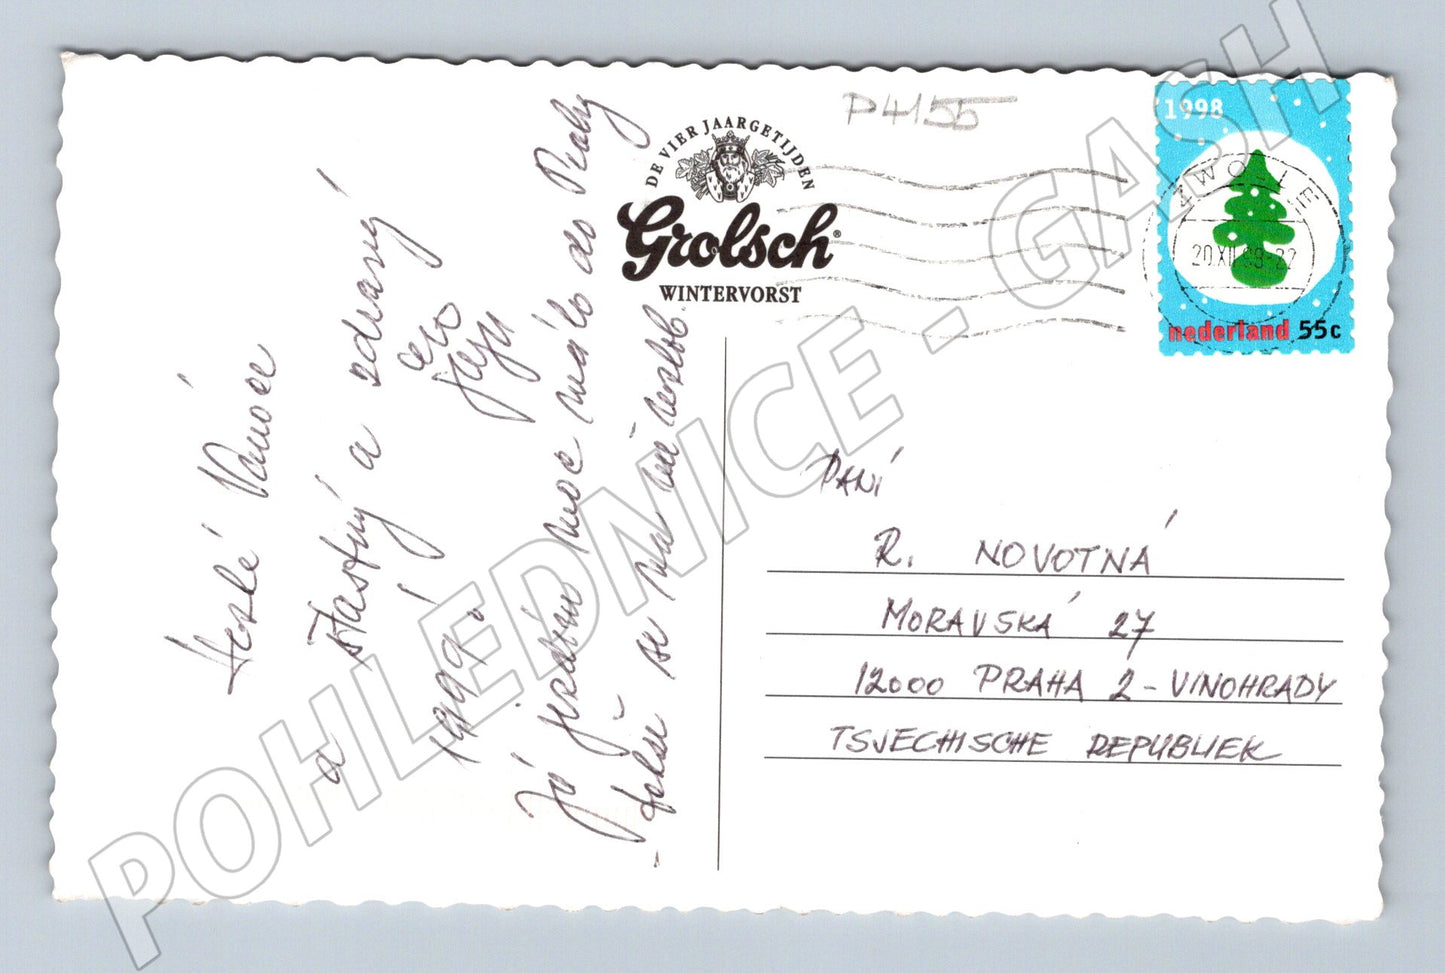 P4155
DE VIER JAARGETIJDEN
Grolsch
WINTERVORST
1998
ZWOLLE
20.XII.98-22
nederland 55c
Veselé Vánoce
a šťastný a zdravý
1999!
Já jezdím moc málo do Prahy
- takže se na mě nezlob.
PANÍ
R. NOVOTNÁ
MORAVSKÁ 27
12000 PRAHA 2-VINOHRADY
TSJECHISCHE REPUBLIEK
POHLEDNICE - GASH